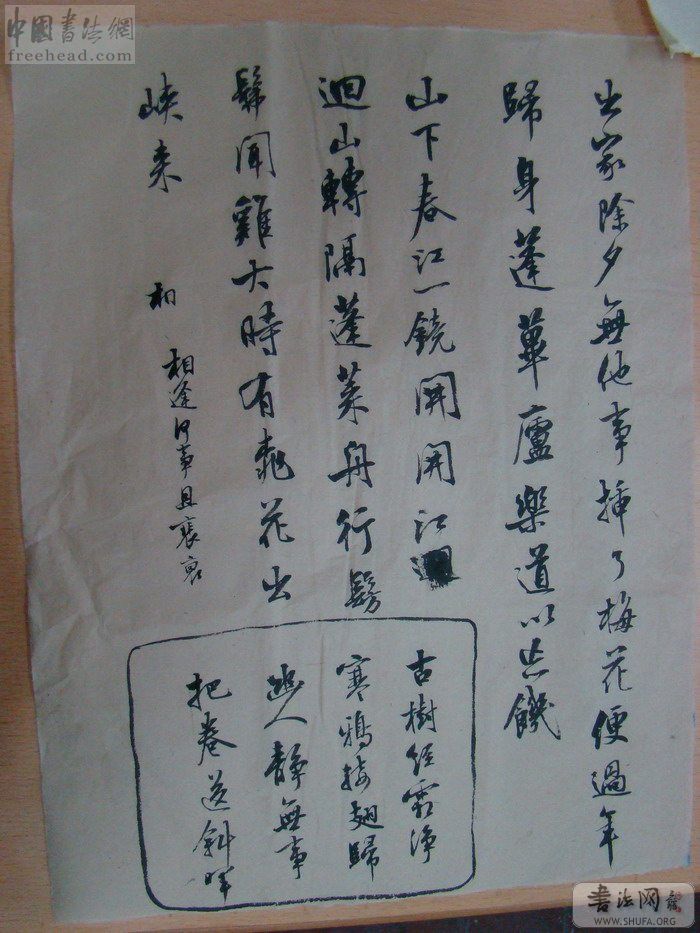 中國書法網
freehead.com
出家除夕無他事插了梅花便過年
歸身蓬蓽廬樂道以忘饑
山下春江一鏡開開江
迴山轉隔蓬萊舟行髣
髴聞雞犬時有桃花出
峽来
相逢何事且
古樹經霜淨
寒鴉接翅歸
幽人靜無事
把卷送斜暉
书法网
WWW.SHUFA.ORG